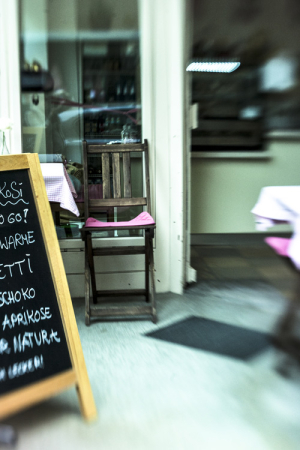 KaSi
O GO?
WARME
ETTI
SCHOKO
APRIKOSE
NATUR
LECKER!